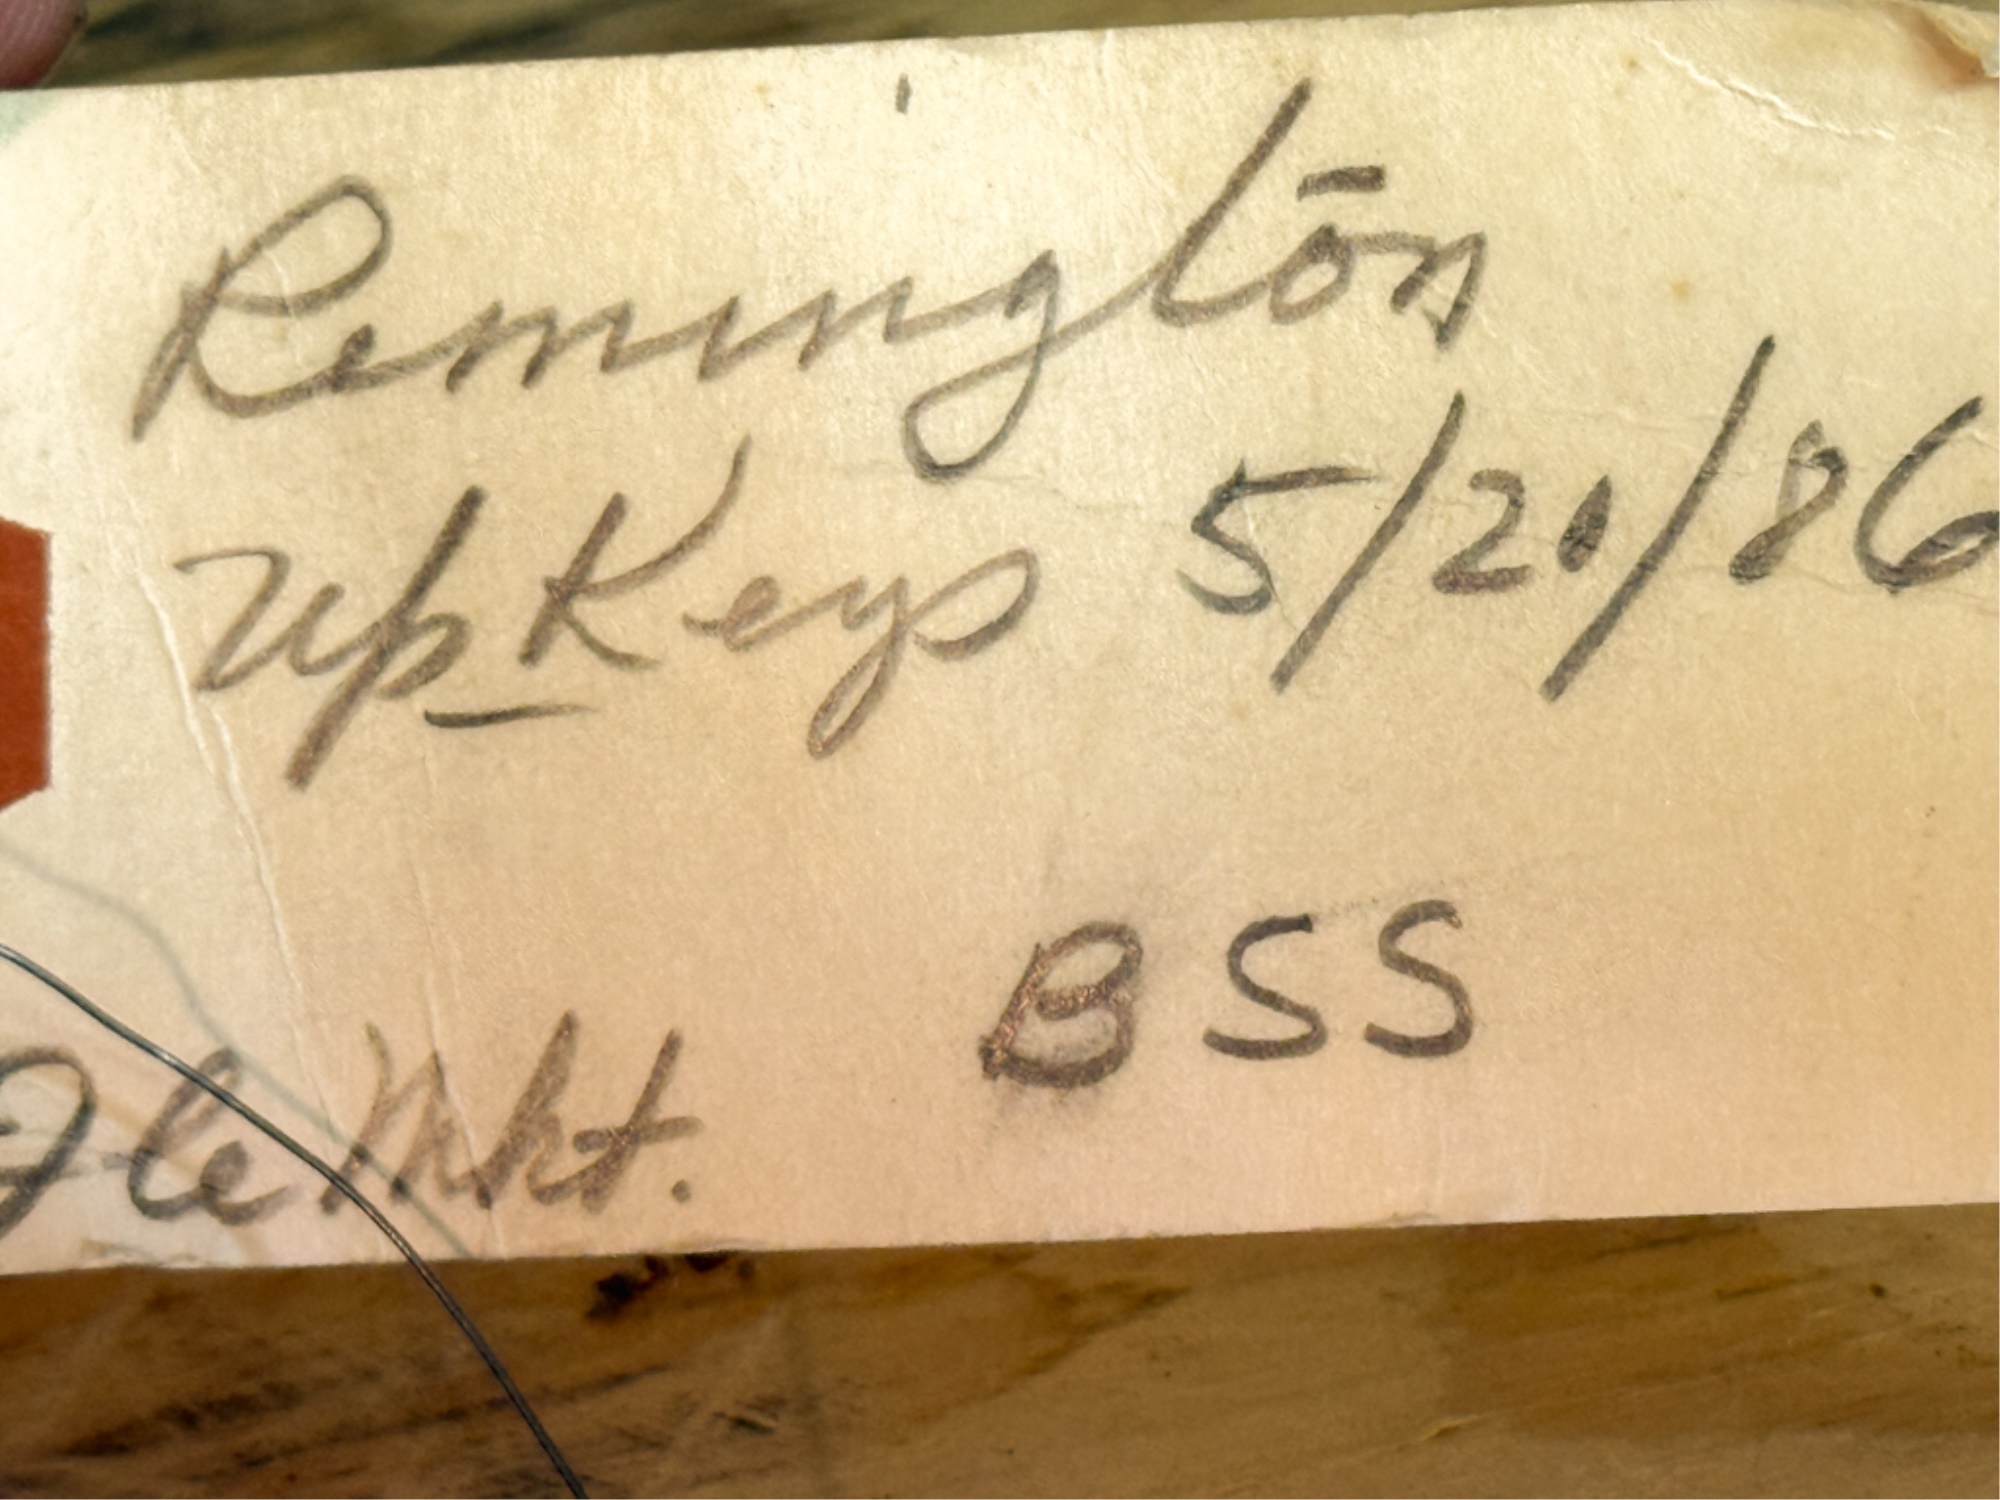 Remington
Up Keys 5/20/86
BSS
Mkt.